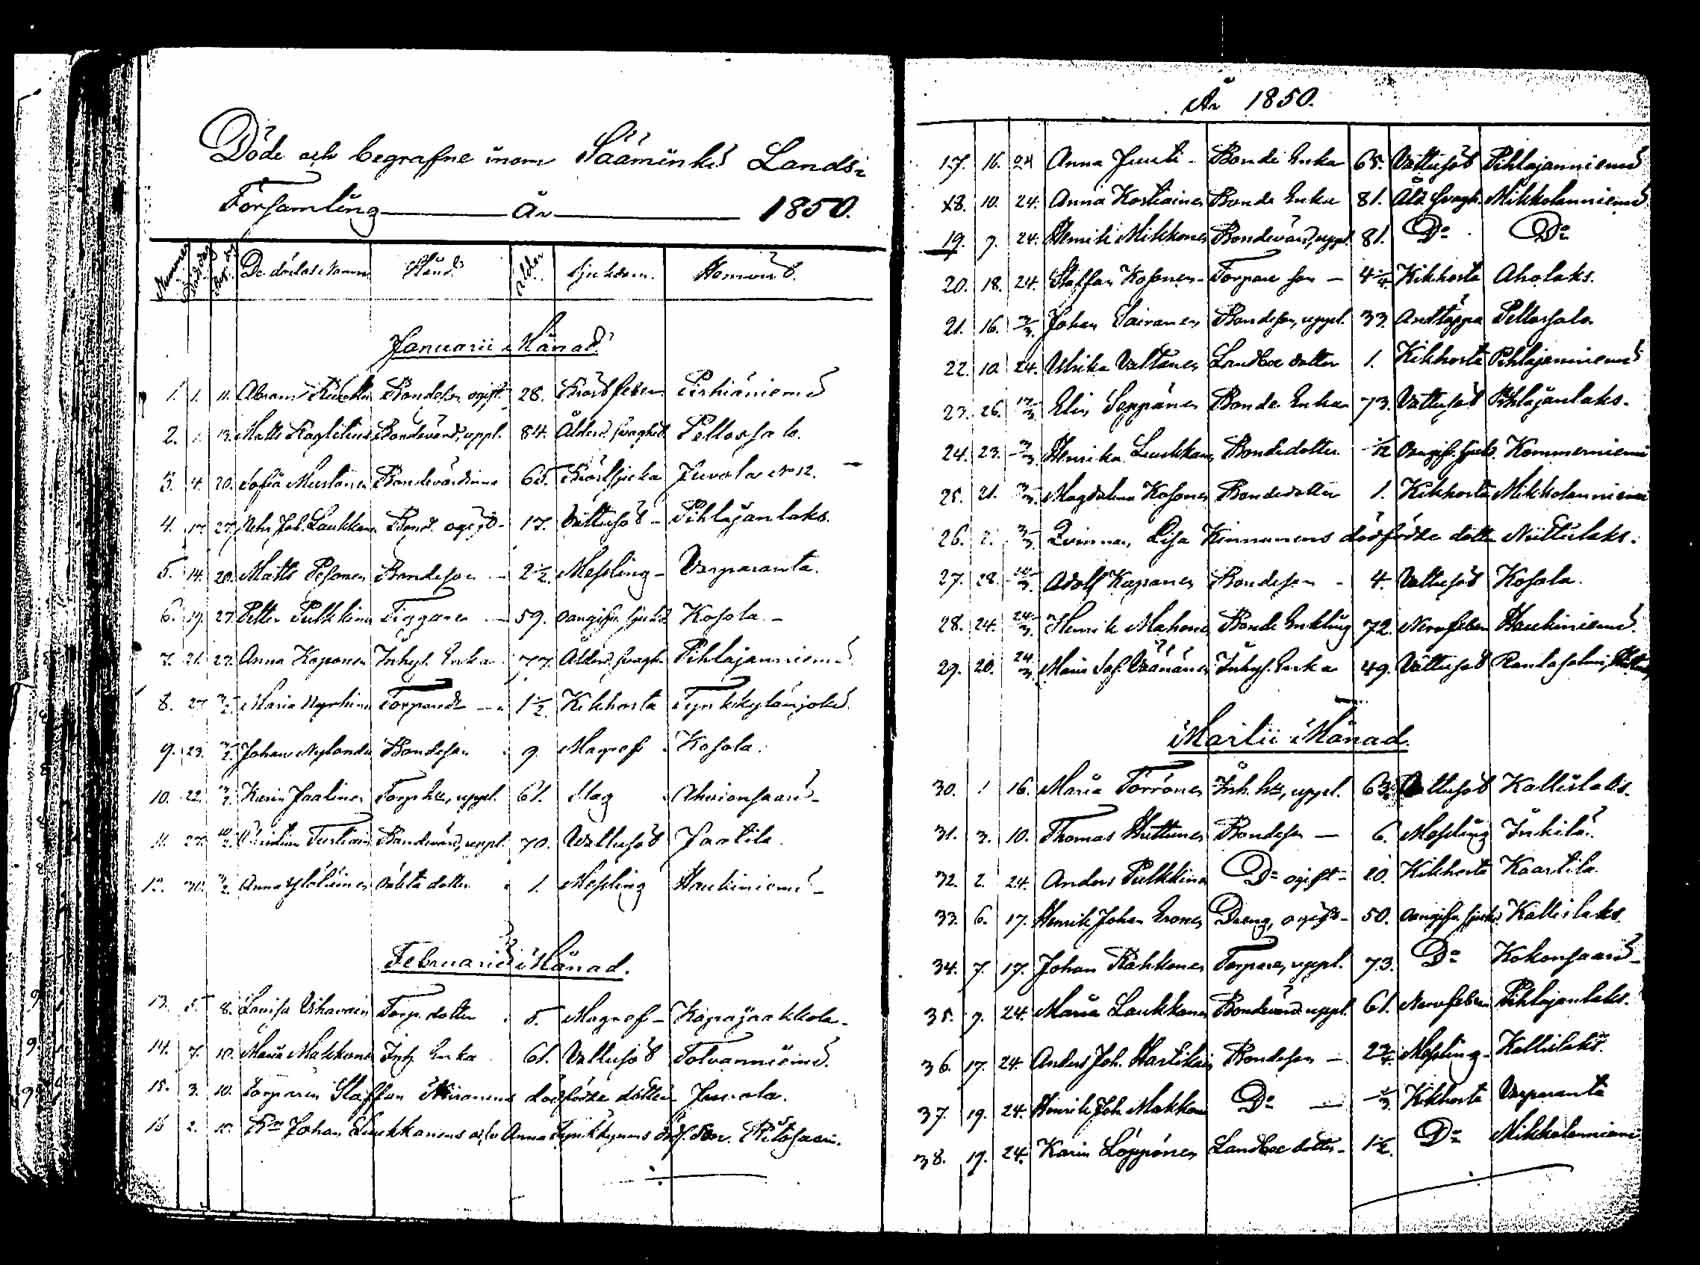 Döde och begrafne inom Sääminki Lands-
Församling år 1850.
Nummer De dödas namn Stånd Ålder Sjukdom Hemvist
Januarii Månad
1. 1. 11. Abram Bondeson ogift 28. Pirhiäniemi
2. 1. 13. Matts Bondevärd, uppl. 84. Ålderd. svaghet Pellossalo.
3. 4. 20. Sofia Mustonen Bondevärdinna 65. Bröstsjuka Juvola No 12.
4. 17. 27. Joh. Laukkanen Bond. ogift 17. Vattusot Pihlajanlaks.
5. 14. 20. Matts Pesonen Bondeson 2½ Messling Varparanta.
6. 19. 27. Petter Pulkkinen Tiggaren 59. oangifn sjukd. Kosola
7. 21. 27. Anna Kaponen Inhys. Enka 77. Ålderd. svagh. Pihlajanniemi
8. 27. 3/2. Maria Torpared. 1½. Kikhosta Tynkkylänjoki.
9. 23. 3/2. Johan Nylander Bondeson 9. Magref Kosola.
10. 22. 3/2. Karin Jaalinen Torp. h., uppl. 61. Slag Ahvionsaari
11. 27. 10/2. Bondevärd, uppl. 70. Vattusot Jaatila.
12. 30. 3/2. Anna oäkta dotter 1. Messling Haukiniemi
Februarii Månad.
13. 5. 8. Lovisa Vihavain Torp. dotter 5. Magref Käpäjaakkola.
14. 7. 10. Maria Makkonen Inh. Enka 61. Vattusot Totvanniemi.
15. 3. 10. Torparen Staffan dödfödde dotter Juvola.
16. 2. 10. Johan Laukkanens och Anna Tynkkynens Son. Pitosaari.
År 1850.
17. 16. 24. Anna Juuti Bonde Enka 65. Vattusot Pihlajanniemi
18. 10. 24. Anna Kostiainen Bonde Enka 81. Åld. svagh. Mikkolanniemi
19. 9. 24. Henrik Mikkonen Bondevärd, uppl. 81. Do Do
20. 18. 24. Staffan Kosonen Torpare son 4¼ Kikhosta Aholaks.
21. 16. 3/3. Johan Sairanen Bondeson, uppl. 33. Andtäppa Pellossalo
22. 10. 24. Ulrika Valtonen Landboe dotter 1. Kikhosta Pihlajaniemi
23. 26. 17/3. Elin Seppänen Bonde Enka 73. Vattusot Pihlajanlaks.
24. 23. 3/3. Henrika Laukkanen Bondedotter 1/12 oangifn sjukd. Kommerniemi
25. 21. 3/3. Magdalena Kosonen Bondedotter 1. Kikhosta Mikkolanniemi
26. 2. 3/3. Qvinnan Lisa Kinnunens dödfödde dotter Niittylaks.
27. 28. 10/3. Adolf Kaponen Bondeson 4. Vattusot Kosola.
28. 24. 24/3. Henrik Mahonen Bonde Enkling 72. Nervfeber Haukiniemi.
29. 20. 24/3. Maria Sof. Väänänen Inhys. Enka 49. Vattusot Randasalmi
Martii Månad.
30. 1. 16. Maria Törrönen Inh. h., uppl. 63. Vattusot Kallislaks.
31. 3. 10. Thomas Huttunen Bondeson 6. Messling Inkilä.
32. 2. 24. Anders Pulkkinen Do ogift 20. Kikhosta Kaartila.
33. 6. 17. Henrik Johan Eronen Dreng, ogift 50. oangifn sjukd. Kallislaks
34. 7. 17. Johan Torpare, uppl. 73. Do Kokonsaari
35. 9. 24. Maria Laukkanen Bondevärd. uppl. 61. Nervfeber Pihlajanlaks.
36. 17. 24. Anders Joh. Hartikain Bondeson 2¾. Messling Kallislaks.
37. 19. 24. Henrik Joh. Makkon Do 1/3. Kikhosta Varparanta
38. 17. 24. Karin Löppönen Landboe dotter 1½. Do Mikkolanniemi